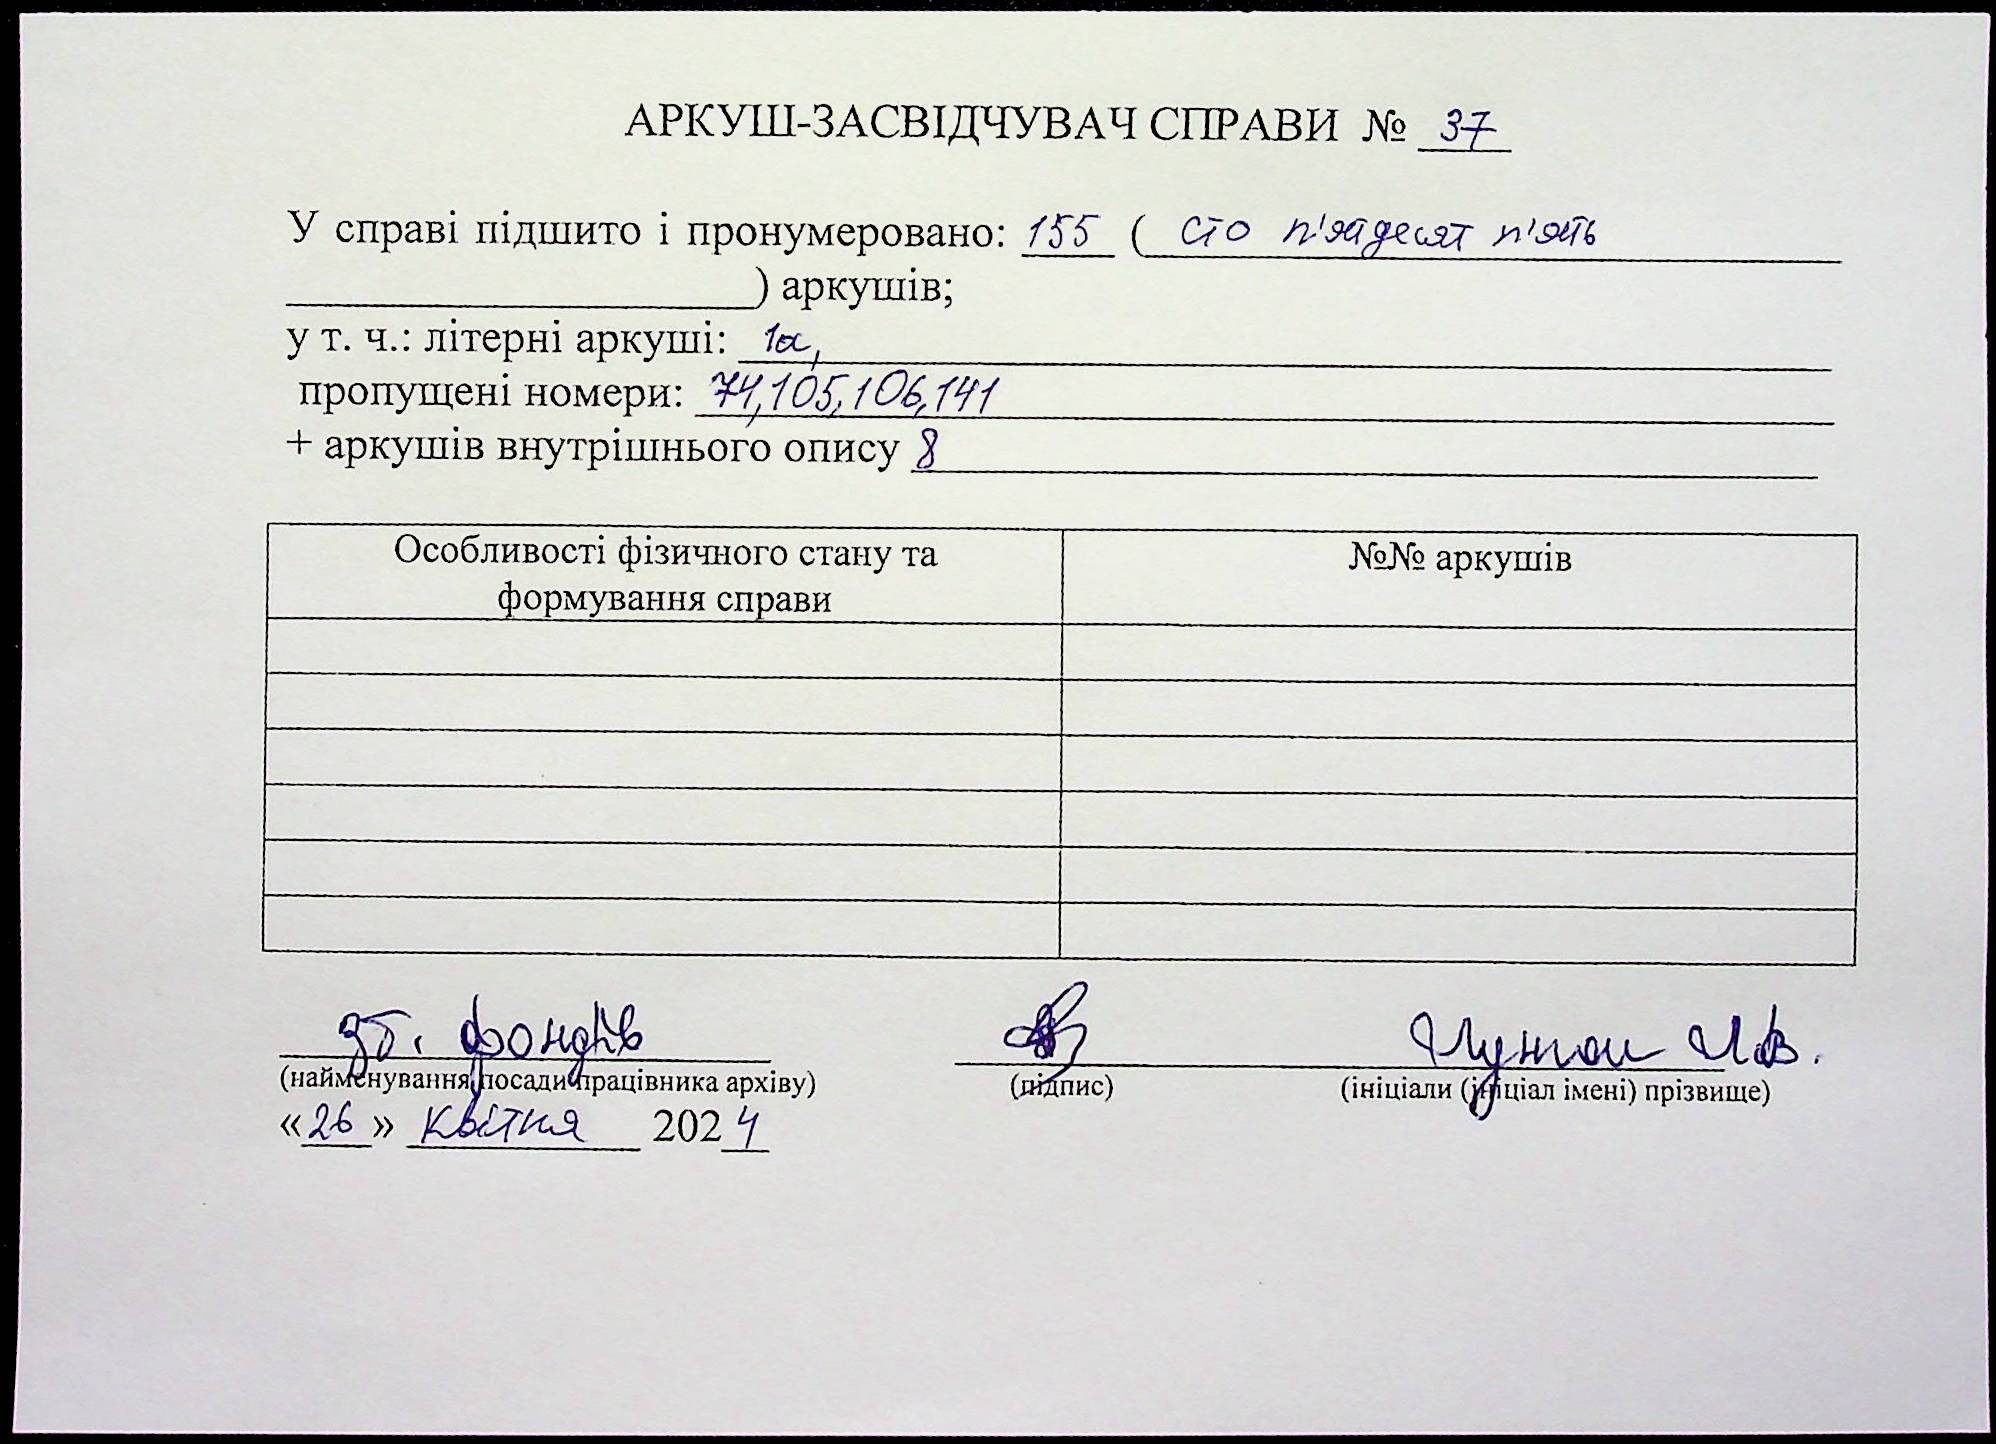 АРКУШ-ЗАСВІДЧУВАЧ СПРАВИ № 37
У справі підшито і пронумеровано: 155 ( сто п'ятдесят п'ять
) аркушів;
у т. ч.: літерні аркуші: 1а,
пропущені номери: 74,105,106,141
+ аркушів внутрішнього опису 8
Особливості фізичного стану та
формування справи
№№ аркушів
зб. фондів
(найменування посади працівника архіву)
(підпис)
(ініціали (ініціал імені) прізвище)
«26» квітня 2024